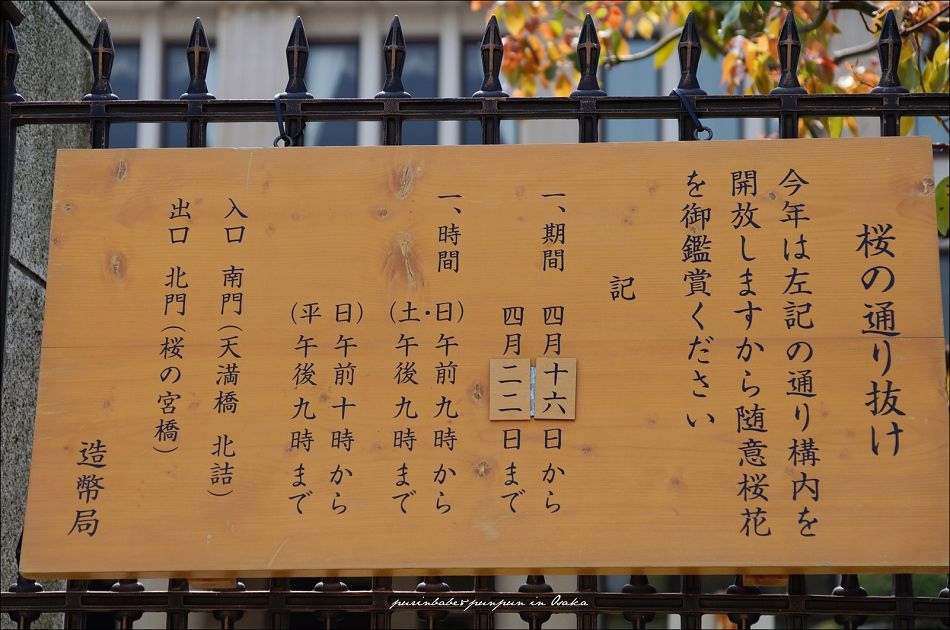 桜の通り抜け
今年は左記の通り構内を
開放しますから随意桜花
を御鑑賞ください
記
一、期間 四月十六日から
四月二二日まで
一、時間 (土・日)午前九時から
午後九時まで
(平日)午前十時から
午後九時まで
入口 南門(天満橋 北詰)
出口 北門(桜の宮橋)
造幣局
purinbabe&punpun in Osaka